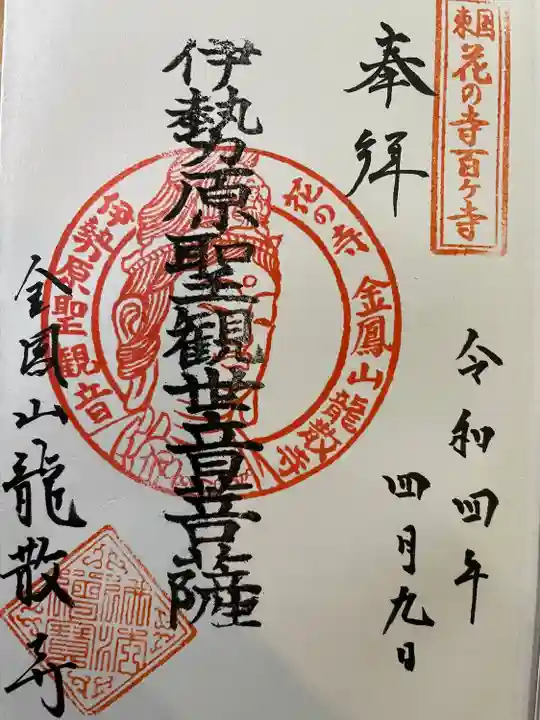 東国
花の寺百ヶ寺
奉拝
令和四年
四月九日
伊勢原聖観世音菩薩
花の寺 金鳳山龍散寺
伊勢原聖観音
金鳳山龍散寺